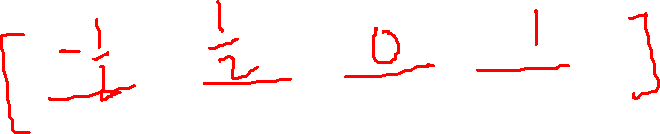 [ -1/2 1/2 0 1 ]